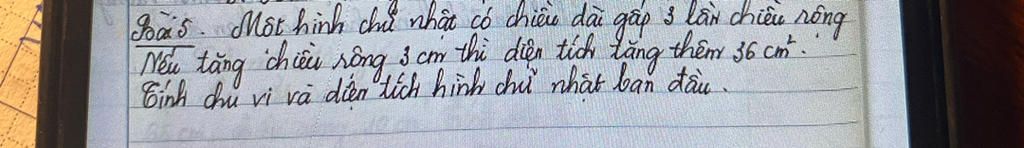 Bài 5. Một hình chữ nhật có chiều dài gấp 3 lần chiều rộng
Nếu tăng chiều rộng 3 cm thì diện tích tăng thêm 36 cm².
Tính chu vi và diện tích hình chữ nhật ban đầu.